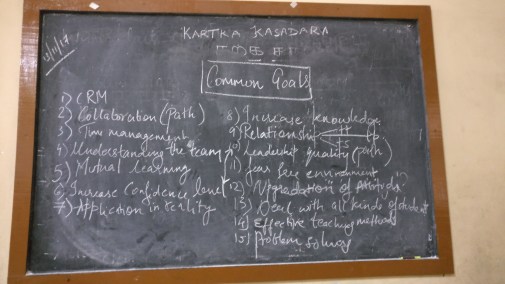 13/11/17
KARTKA KASADARA
Common Goals
1) CRM
2) Collaboration (Path)
3) Time management
4) Understanding the team
5) Mutual learning
6) Increase Confidence level
7) Application in reality
8) Increase knowledge
9) Relationship
10) Leadership quality (path)
11) fear free environment
12) Upgradation of
13) Deal with all kinds of student
14) Effective teaching methods
15) Problem solving